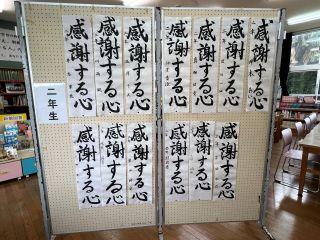 感謝する心
感謝する心
感謝する心
感謝する心
感謝する心
感謝する心
二年生
感謝する心
感謝する心
感謝する心
感謝する心
感謝する心
感謝する心